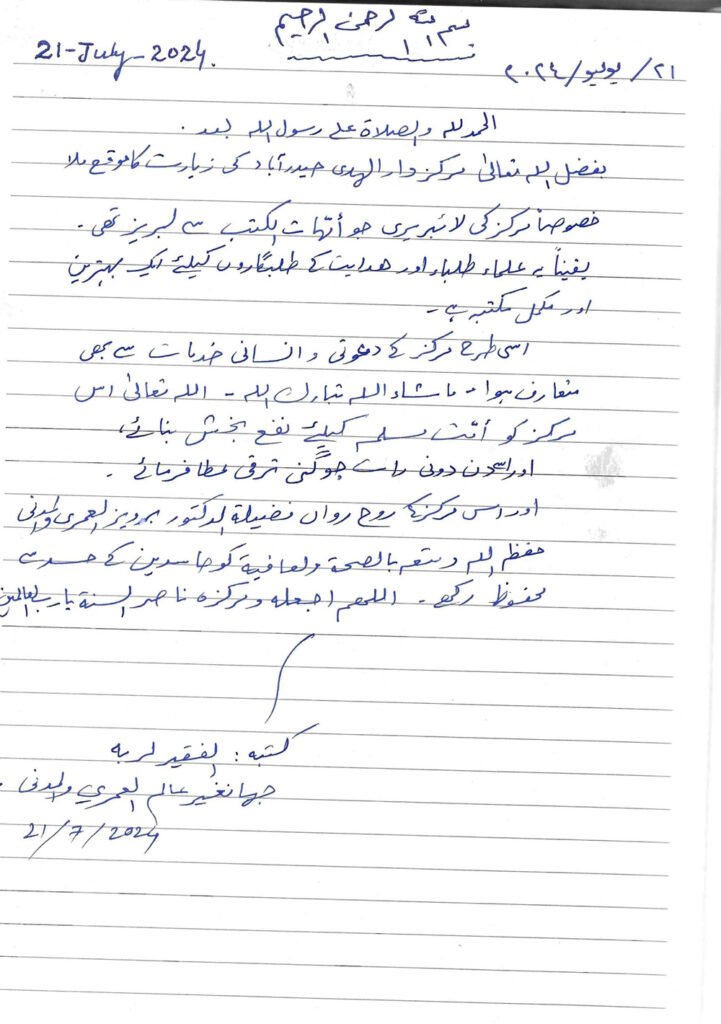 بسم الله الرحمن الرحيم
21-July-2024.
٢١/يوليو/٢٠٢٤
الحمد لله والصلاة على رسول الله بعد .
بفضل اللہ تعالیٰ مرکز دار الہدی حیدرآباد کی زیارت کا موقع ملا
خصوصاً مرکز کی لائبریری جو أمّہات الکتب سے لبریز تھی ۔
یقیناً یہ علماء طلباء اور ھدایت کے طلبگاروں کیلئے ایک بہترین
اور مکمل مکتبہ ہے ۔
اسی طرح مرکز کے دعوتی و انسانی خدمات سے بھی
متعارف ہوا ۔ ماشاء اللہ تبارک اللہ ۔ اللہ تعالیٰ اس
مرکز کو أمّت مسلمہ کیلئے نفع بخش بنائے،
اور اسے دن دونی رات چوگنی ترقی عطا فرمائے ۔
اور اس مرکز کے روح رواں فضیلة الدکتور پرویز العمری والمدنی
حفظہ اللہ ومتعه بالصحة والعافیة کو حاسدین کے حسد سے
محفوظ رکھے ۔ اللهم اجعله ومركزه ناصر السنة يا رب العالمين
كتبه : الفقير لربه
جهانغير عالم العمري والمدنی .
21/7/2024